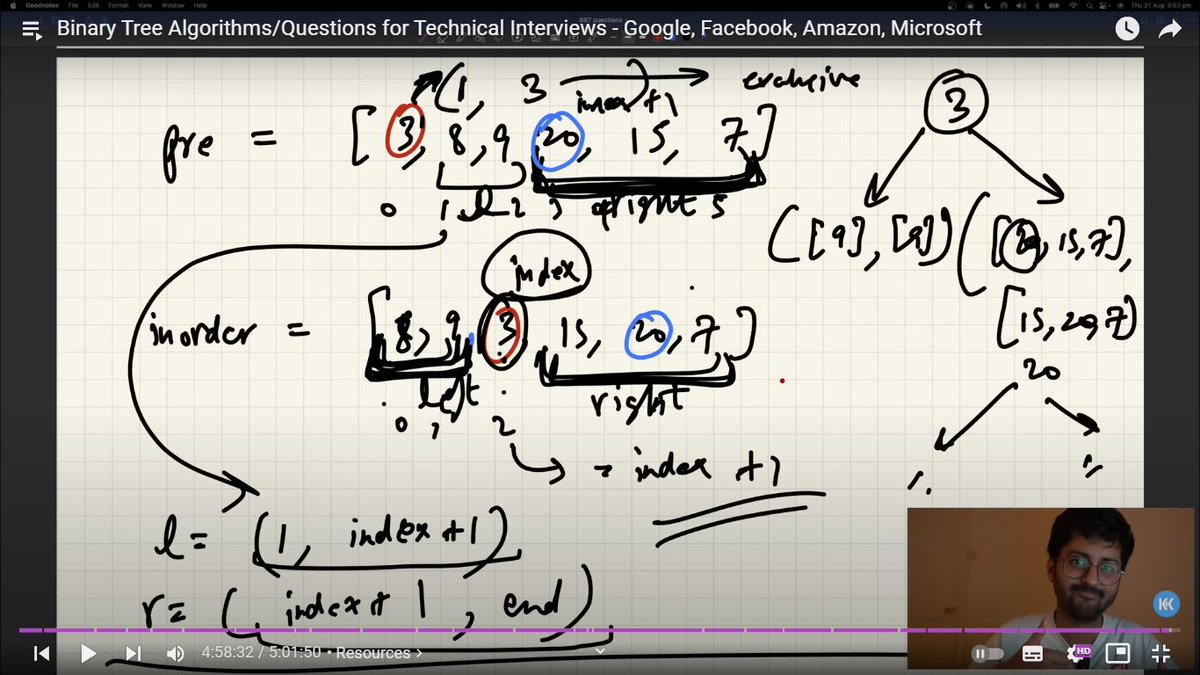 Goodnotes File Edit Format View Window Help
Thu 31 Aug 8:53 pm
BST questions
Binary Tree Algorithms/Questions for Technical Interviews - Google, Facebook, Amazon, Microsoft
(1, 3 ) exclusive
index +1
pre = [ 3, 8, 9, 20, 15, 7 ]
0 1 l 2 3 right 5
3
([9], [9]) ([20, 15, 7],
[15, 20, 7])
index
inorder = [8, 9, 3, 15, 20, 7]
left right
0 1 2
20
= index +1
l = (1, index +1)
r = ( index + 1, end)
4:58:32 / 5:01:50 • Resources >
HD